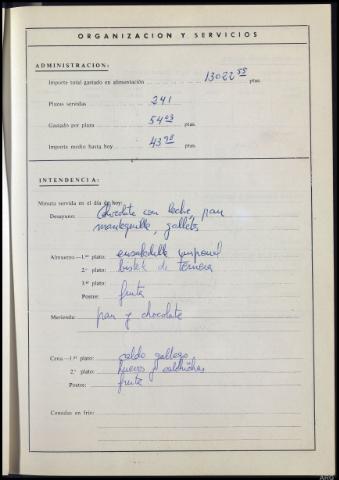 ORGANIZACION Y SERVICIOS
ADMINISTRACION:
Importe total gastado en alimentación 13022 55 ptas.
Plazas servidas 241
Gastado por plaza 54 03 ptas.
Importe medio hasta hoy 43 98 ptas.
INTENDENCIA:
Minuta servida en el día de hoy:
Desayuno: Chocolate con leche, pan
mantequilla, galletas
Almuerzo—1.er plato: ensaladilla imperial
2.º plato: bistek de ternera
3.er plato:
Postre: fruta
Merienda: pan y chocolate
Cena—1.er plato: caldo gallego
2.º plato: huevos y salchichas
Postre: fruta
Comidas en frío: